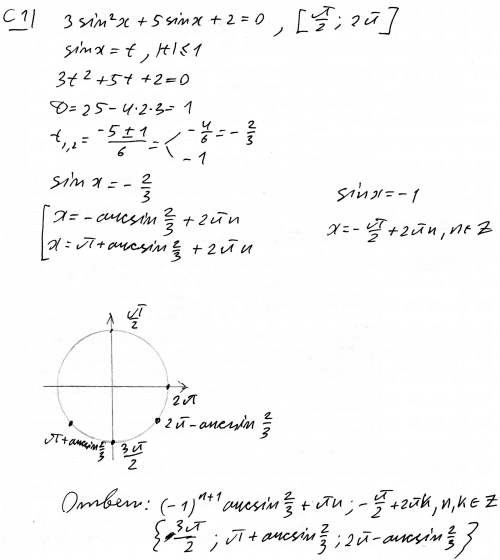 C1) 3sin²x + 5sinx + 2 = 0 , [π/2 ; 2π]
sinx = t , |t| ≤ 1
3t² + 5t + 2 = 0
D = 25 - 4·2·3 = 1
t₁,₂ = (-5 ± 1)/6 = < -4/6 = -2/3
-1
sin x = -2/3
[ x = -arcsin 2/3 + 2πn
x = π + arcsin 2/3 + 2πn
sinx = -1
x = -π/2 + 2πn, n ∈ Z
π/2
2π
2π - arcsin 2/3
π + arcsin 2/3
3π/2
Ответ: (-1)ⁿ⁺¹ arcsin 2/3 + πn ; -π/2 + 2πk, n, k ∈ Z
{3π/2 ; π + arcsin 2/3 ; 2π - arcsin 2/3}